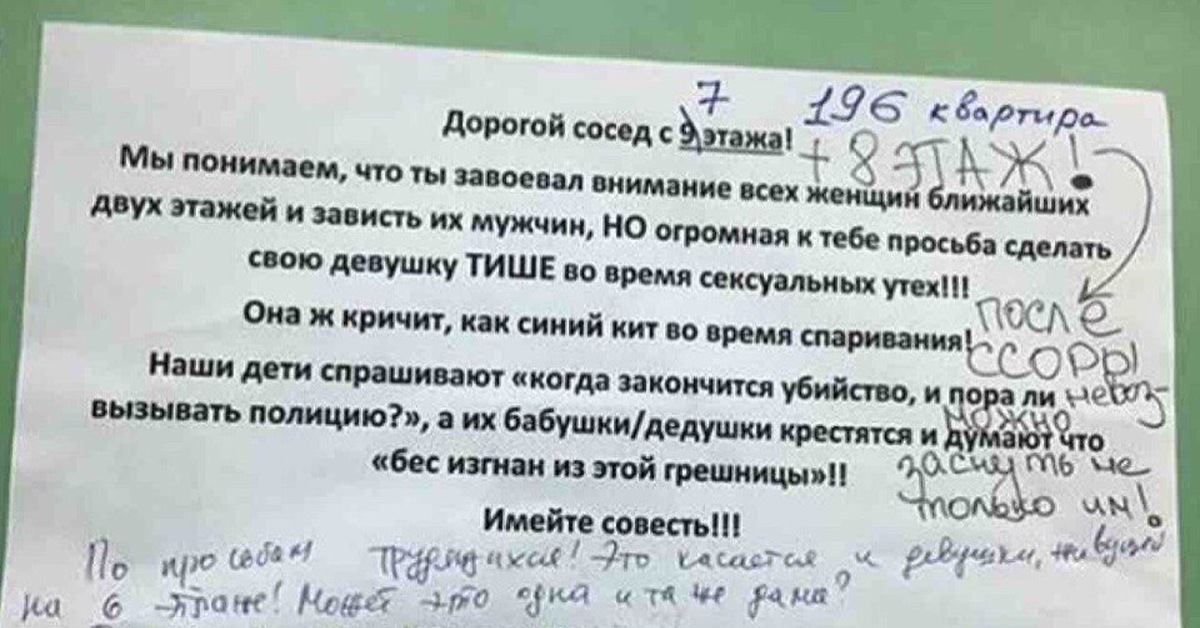 7 196 квартира
Дорогой сосед с 9 этажа!
+ 8 ЭТАЖ!
Мы понимаем, что ты завоевал внимание всех женщин ближайших
двух этажей и зависть их мужчин, НО огромная к тебе просьба сделать
свою девушку ТИШЕ во время сексуальных утех!!!
Она ж кричит, как синий кит во время спаривания!
ПОСЛЕ
ССОРЫ
Наши дети спрашивают «когда закончится убийство, и пора ли
вызывать полицию?», а их бабушки/дедушки крестятся и думают что
«бес изгнан из этой грешницы»!!
невоз-
можно
заснуть не
только им!
Имейте совесть!!!
По просьбам трудящихся! Это касается и девушки, живущей
на 6 этаже! Может это одна и та же дама?